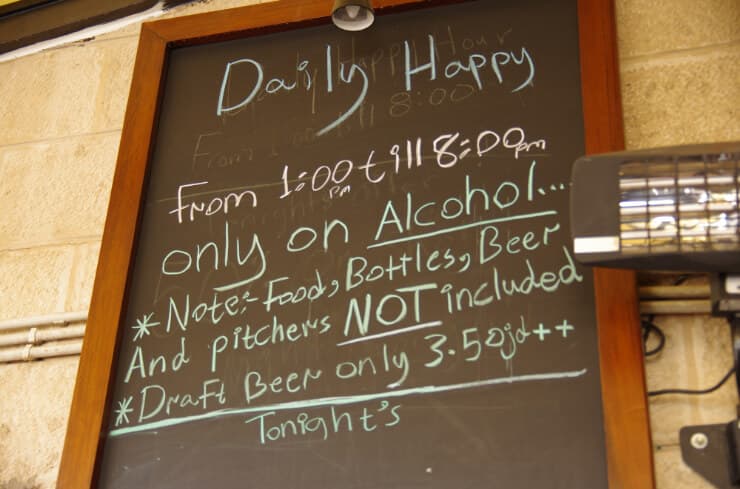 Daily Happy
From 1:00pm till 8:00pm
only on Alcohol...
* Note:- Food, Bottles, Beer
And pitchers NOT included
* Draft Beer only 3.50jd++
Tonight's